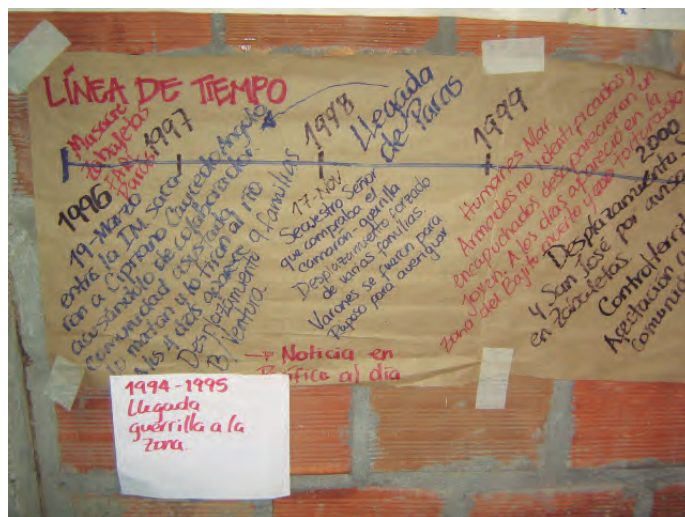 LÍNEA DE TIEMPO
Masacre
Zabaletas
1996
19-Marzo
entró la I.M. saca-
ron a Cipriano Caycedo Angulo
acusándolo de colaborador.
comunidad asustada
lo matan y lo tiran al río
A los 4 días aparece
Desplazamiento 9 familias
B/ventura.
1997
1998
17-Nov
Secuestro Señor
que compraba el
camarón-guerrilla
Desplazamiento forzado
de varias familias.
Varones se fueron para
Papayo para averiguar
→ Noticia en
Pacífico al día
Llegada
de Paras
1999
Humanes Mar
Armados no identificados y
encapuchados desaparecieron un
Joven. A los días apareció en la
zona del Bajito muerto y todo torturado
2000
Desplazamiento S
y San José por aviso
en Zabaletas
Control territ
Afectación a
comunid
1994-1995
Llegada
guerrilla a la
Zona.